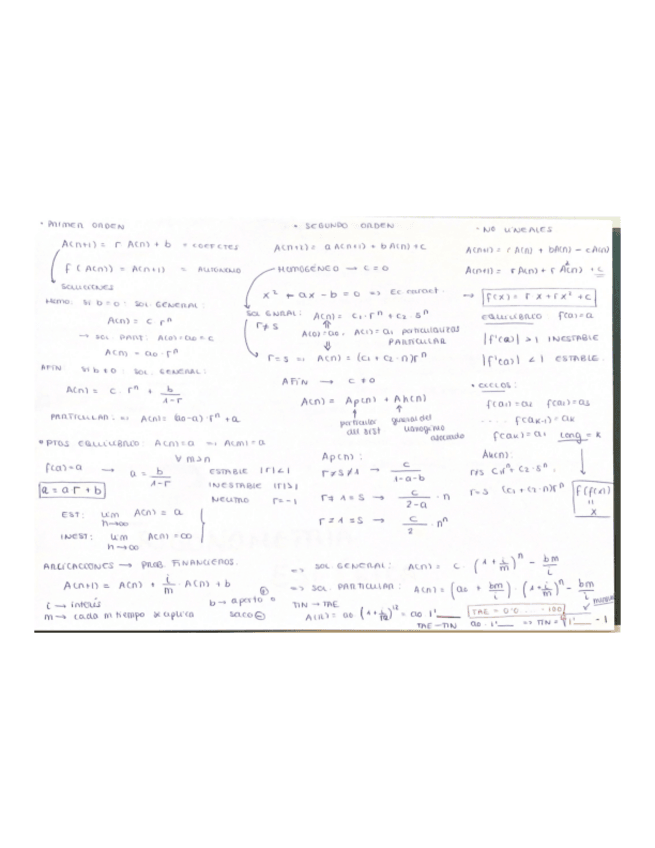 • PRIMER ORDEN
A(n+1) = r A(n) + b = COEFCTES
f(A(n)) = A(n+1) = AUTONOMO
SOLUCIONES
HOMO: Si b=0: SOL GENERAL:
A(n) = c rⁿ
→ SOL. PART: A(0)=a0=c
A(n) = a0 · rⁿ
AFIN: Si b≠0: SOL. GENERAL:
A(n) = c · rⁿ + b/1-r
PARTICULAR: => A(n) = (a0-a)·rⁿ + a
• PTOS EQUILIBRIO: A(n)=a => A(m)=a
∀ m>n
f(a)=a → a = b/1-r
a = a r + b
ESTABLE |r|<1
INESTABLE |r|>1
NEUTRO r=-1
EST: lim n→∞ A(n) = a
INEST: lim n→∞ A(n) = ∞
• SEGUNDO ORDEN
A(n+2) = a A(n+1) + b A(n) + c
HOMOGÉNEO → c=0
x² - ax - b = 0 => Ec. caract.
SOL GNRAL: A(n) = c1·rⁿ + c2·sⁿ
r≠s
A(0)=a0, A(1)=a1
PARTICULAR
r=s => A(n) = (c1 + c2·n)rⁿ
AFIN → c≠0
A(n) = Ap(n) + Ah(n)
particular del sist
general del homogéneo asociado
Ap(n):
r≠s≠1 → c/1-a-b
r≠1=s → c/2-a · n
r=1=s → c/2 ·
• NO LINEALES
A(n+1) = r A(n) + bA(n) - cA(n)
→ f(x) = r x + r x² + c
EQUILIBRIO f(a)=a
|f'(a)| > 1 INESTABLE
|f'(a)| < 1 ESTABLE.
• CICLOS:
f(a1)=a2 f(a2)=a3
.... f(ak-1)=ak
f(ak)=a1 Long = k
Ah(n):
r≠s c1rⁿ + c2·sⁿ
r=s (c1 + c2·n)rⁿ
f(f(x)) = x
APLICACIONES → PROB. FINANCIEROS.
A(n+1) = A(n) + i/m · A(n) + b
i → interés
b → aporto ⊕
saco ⊖
m → cada m tiempo se aplica
=> SOL. GENERAL: A(n) = c · (1 + i/m)ⁿ - bm/i
=> SOL. PARTICULAR: A(n) = (a0 + bm/i) · (1 + i/m)ⁿ - bm/i
TIN → TAE
A(12) = a0 (1 + i/12)¹² = a0 1'___
TAE = 0'0.... · 100
TAE → TIN a0 · 1'___ => TIN = 1'___ - 1